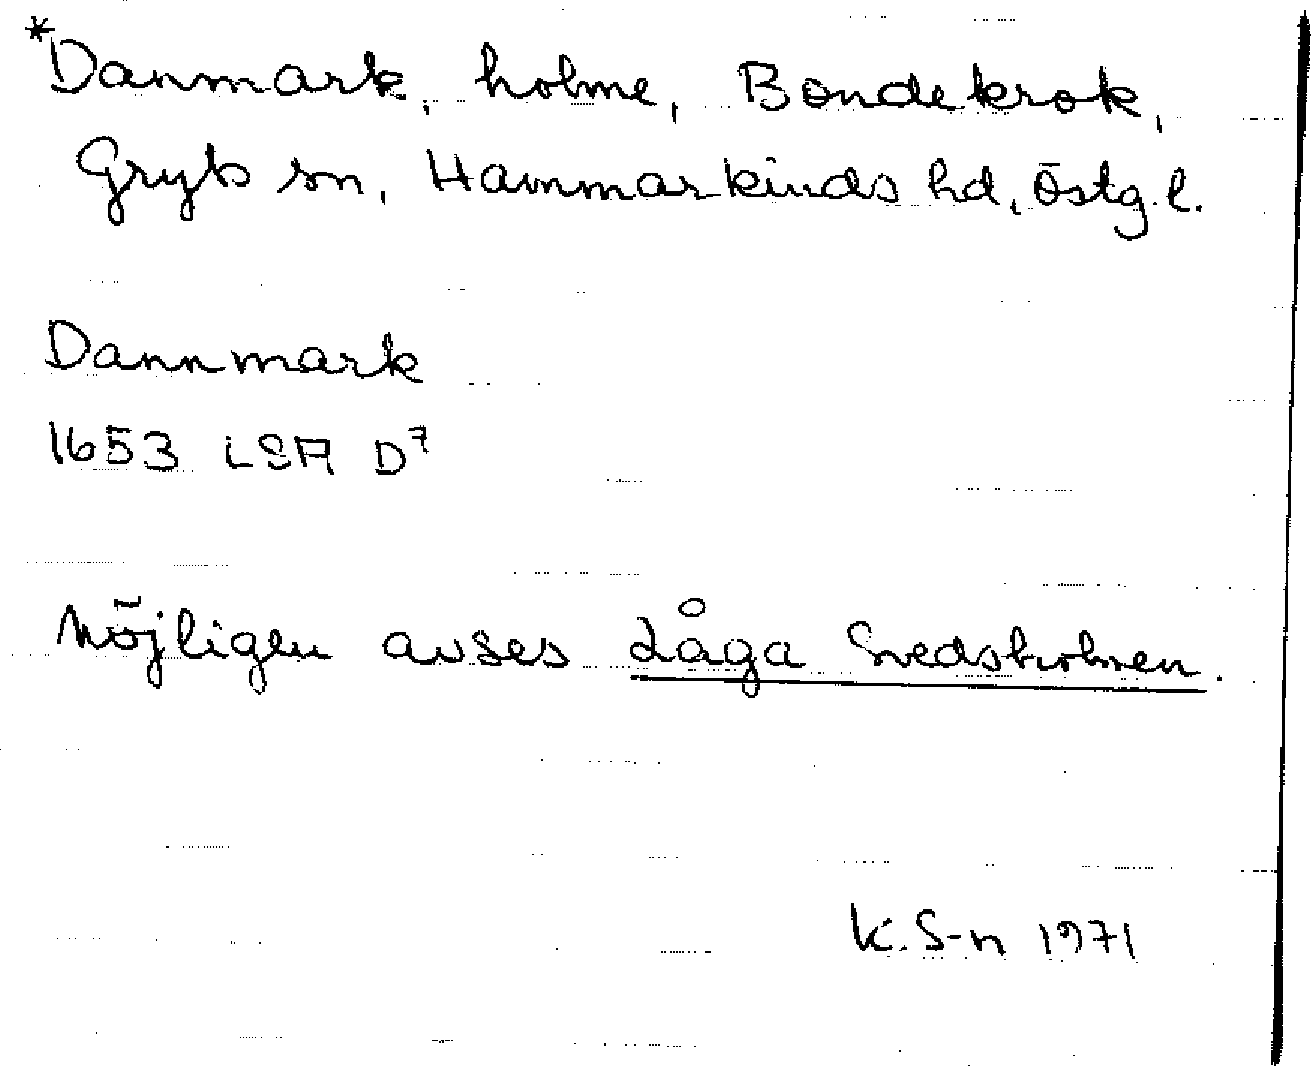 *Danmark, holme, Bondekrok,
Gryts sn, Hammarkinds hd, Östg.l.
Dannmark
1653 LSA D7
Möjligen avses Låga Svedsholmen.
K.S-n 1971